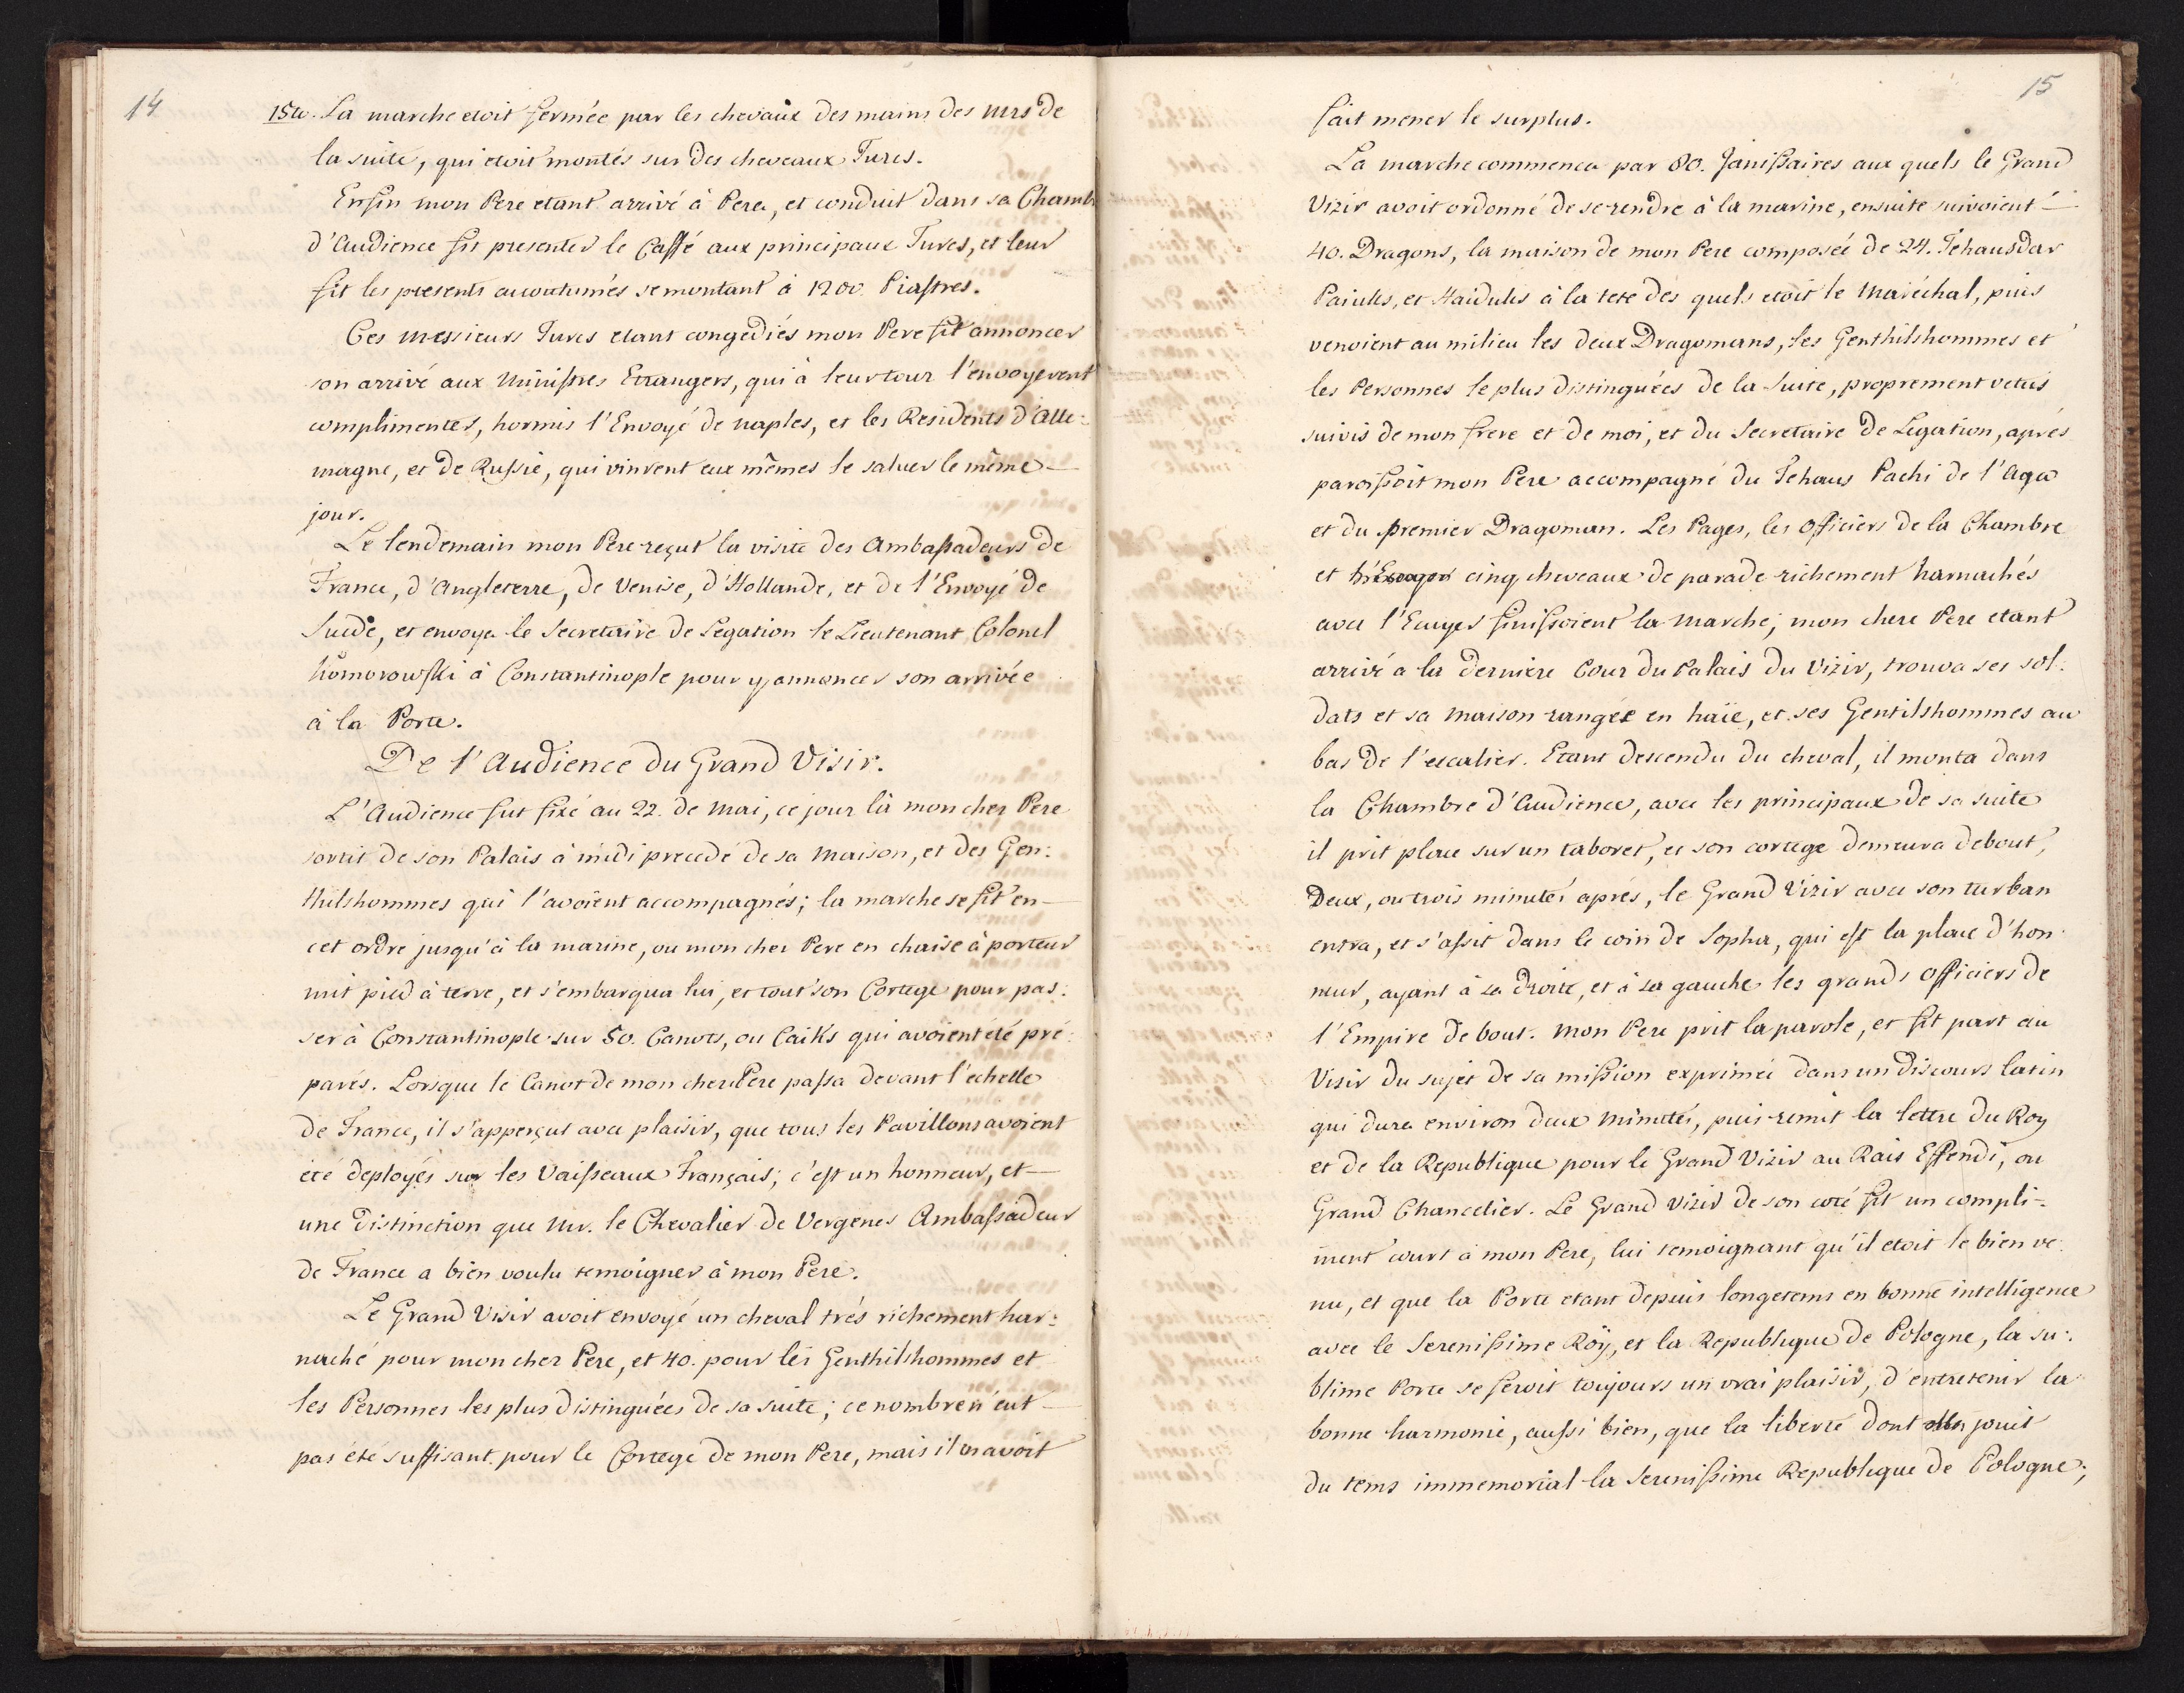 14
15to. La marche etoit fermée par les chevaux des mains des Mrs de
la suite, qui etoit montés sur des cheveaux Turcs.
Enfin mon Pere etant arrivé à Pera, et conduit dans sa Chamb
d'Audience fit presenter le Caffé aux principaux Turcs, et leur
fit les presents accoutumés se montant à 1200 Piastres.
Ces Messieurs Turcs etant congediés mon Pere fit annoncer
son arrivé aux Ministres Etrangers, qui à leur tour l'envoyerent
complimenter, hormis l'Envoyé de Naples, et les Residents d'Alle:
magne, et de Russie, qui vinrent eux mêmes le saluer le même
jour.
Le lendemain mon Pere reçut la visite des Ambassadeurs de
France, d'Angleterre, de Venise, d'Hollande, et de l'Envoyé de
Suede, et envoya le Secretaire de Legation le Lieutenant Colonel
Komorowski à Constantinople pour y annoncer son arrivée
à la Porte.
De l'Audience du Grand Visir.
L'Audience fut fixé au 22. de Mai, ce jour là mon cher Pere
sortit de son Palais à midi precedé de sa Maison, et des Gen:
thilshommes qui l'avoient accompagnés; la marche se fit en
cet ordre jusqu'à la marine, ou mon cher Pere en chaise à porteur
mit pied à terre, et s'embarqua lui, et tout son Cortege pour pas:
ser à Constantinople sur 50. Canots, ou Caiks qui avoient été pré:
parés. Lorsque le Canot de mon cher Pere passa devant l'echelle
de France, il s'apperçut avec plaisir, que tous les Pavillons avoient
été deployés sur les Vaisseaux Français; c'est un honneur, et
une distinction que Mr. le Chevalier de Vergenes Ambassadeur
de France a bien voulu temoigner à mon Pere.
Le Grand Visir avoit envoyé un cheval trés richement har:
naché pour mon cher Pere, et 40. pour les Genthilshommes et
les Personnes les plus distinguées de sa suite; ce nombre n'eut
pas été suffisant pour le Cortege de mon Pere, mais il en avoit
15
fait mener le surplus.
La marche commenca par 80. Janissaires aux quels le Grand
Vizir avoit ordonné de se rendre à la marine, ensuite suivoient
40. Dragons, la maison de mon Pere composée de 24. Tchausdar
Paiuks, et Haiduks à la tete des quels etoit le Maréchal, puis
venoient au milieu les deux Dragomans, les Genthilshommes et
les Personnes le plus distinguées de la Suite, proprement vetus
suivis de mon frere et de moi, et du Secretaire de Legation, aprés
paroissoit mon Pere accompagné du Tchaus Pachi de l'Aga
et du premier Dragoman. Les Pages, les Officiers de la Chambre
et cinq cheveaux de parade richement harnachés
avec l'Ecuyer finissoient la marche; mon chere Pere etant
arrivé a la derniere Cour du Palais du Vizir, trouva ses sol:
dats et sa maison rangée en haïe, et ses Gentilshommes au
bas de l'escalier. Etant descendu du cheval, il monta dans
la Chambre d'Audience, avec les principaux de sa suite
il prit place sur un taboret, et son cortege demeura debout,
Deux, ou trois minutes aprés, le Grand Vizir avec son turban
entra, et s'assit dans le coin de Sopha, qui est la place d'hon:
neur, ayant à sa droite, et à sa gauche les grands Officiers de
l'Empire de bout. Mon Pere prit la parole, et fit part au
Visir du sujet de sa mission exprimée dans un discours latin
qui dura environ deux minutes, puis remit la lettre du Roy
et de la Republique pour le Grand Vizir au Rais Effendi, ou
Grand Chancelier. Le Grand Vizir de son coté fit un compli=
ment court à mon Pere, lui temoignant qu'il etoit le bien ve:
nu, et que la Porte etant depuis longetems en bonne intelligence
avec le Serenissime Roÿ, et la Republique de Pologne, la su:
blime Porte se feroit toujours un vrai plaisir, d'entretenir la
bonne harmonie, aussi bien, que la liberté dont jouit
du tems immemorial la Serenissime Republique de Pologne;